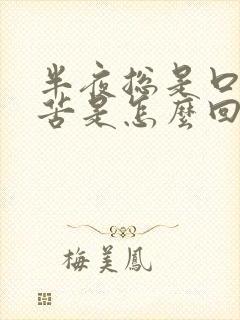 半夜總是口
苦是怎麼回
梅美鳳